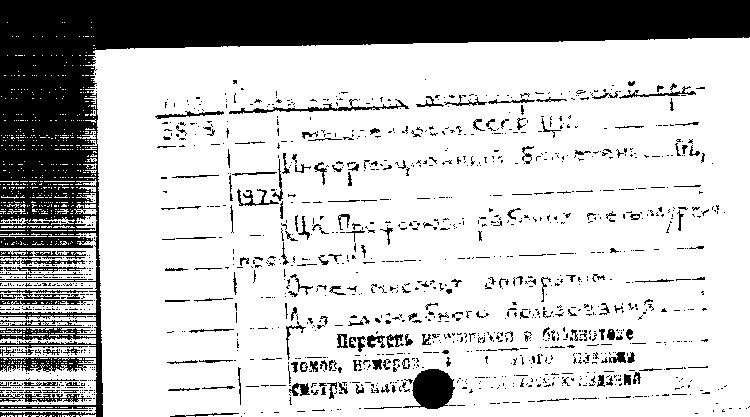 Союз рабочих металлургической про-
мышленности СССР ЦК.
Информационный бюллетень. М.,
1973 -
(ЦК Профсоюза рабочих металлург.
пром-сти)
Отпеч. множит. аппаратом.
Для служебного пользования.
Перечень имеющихся в библиотеке
томов, номеров этого издания
смотри в издания